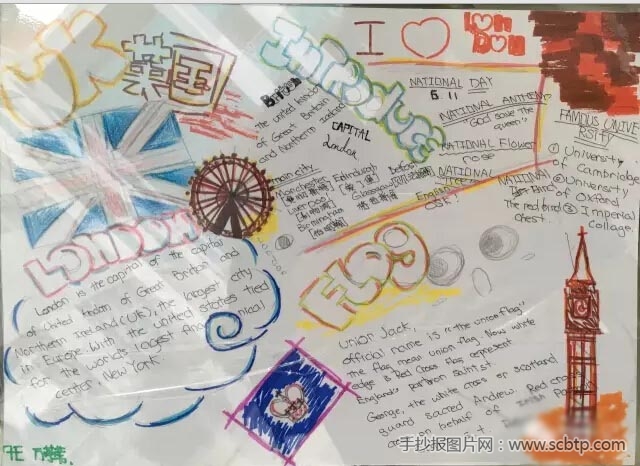 UK 英国
Introduce
I ♡ LONDON
Britain
the united kindom
of Great Britain
and Northern
CAPITAL
London
main city
Manchester Edinburgh Belfast
Liverpool Glasgow
Birmingham
NATIONAL DAY
6.11
NATIONAL ANTHEM
"God save The
queen"
NATIONAL Flower
rose
NATIONAL
England
NATIONAL
Bird
The red bird
chest
FAMOUS UNIVE
RSITY
① University
of Cambridge
② University
of Oxford
③ Imperial
Collage
LONDON
London is the capital of the capital
of United kindom of Great Britain and
Northern Ireland (UK), the largest city
in Europe. With the united states tied
for the world's largest
center, New York
Flag
union Jack,
official name is "the union flag"
the flag mean union flag. Now white
edge is Red Cross flag represent
England's partron saint st
George, the white cross or scotland
guard sacred Andrew. Red cross
on behalf of
手抄报图片网：www.scbtp.com